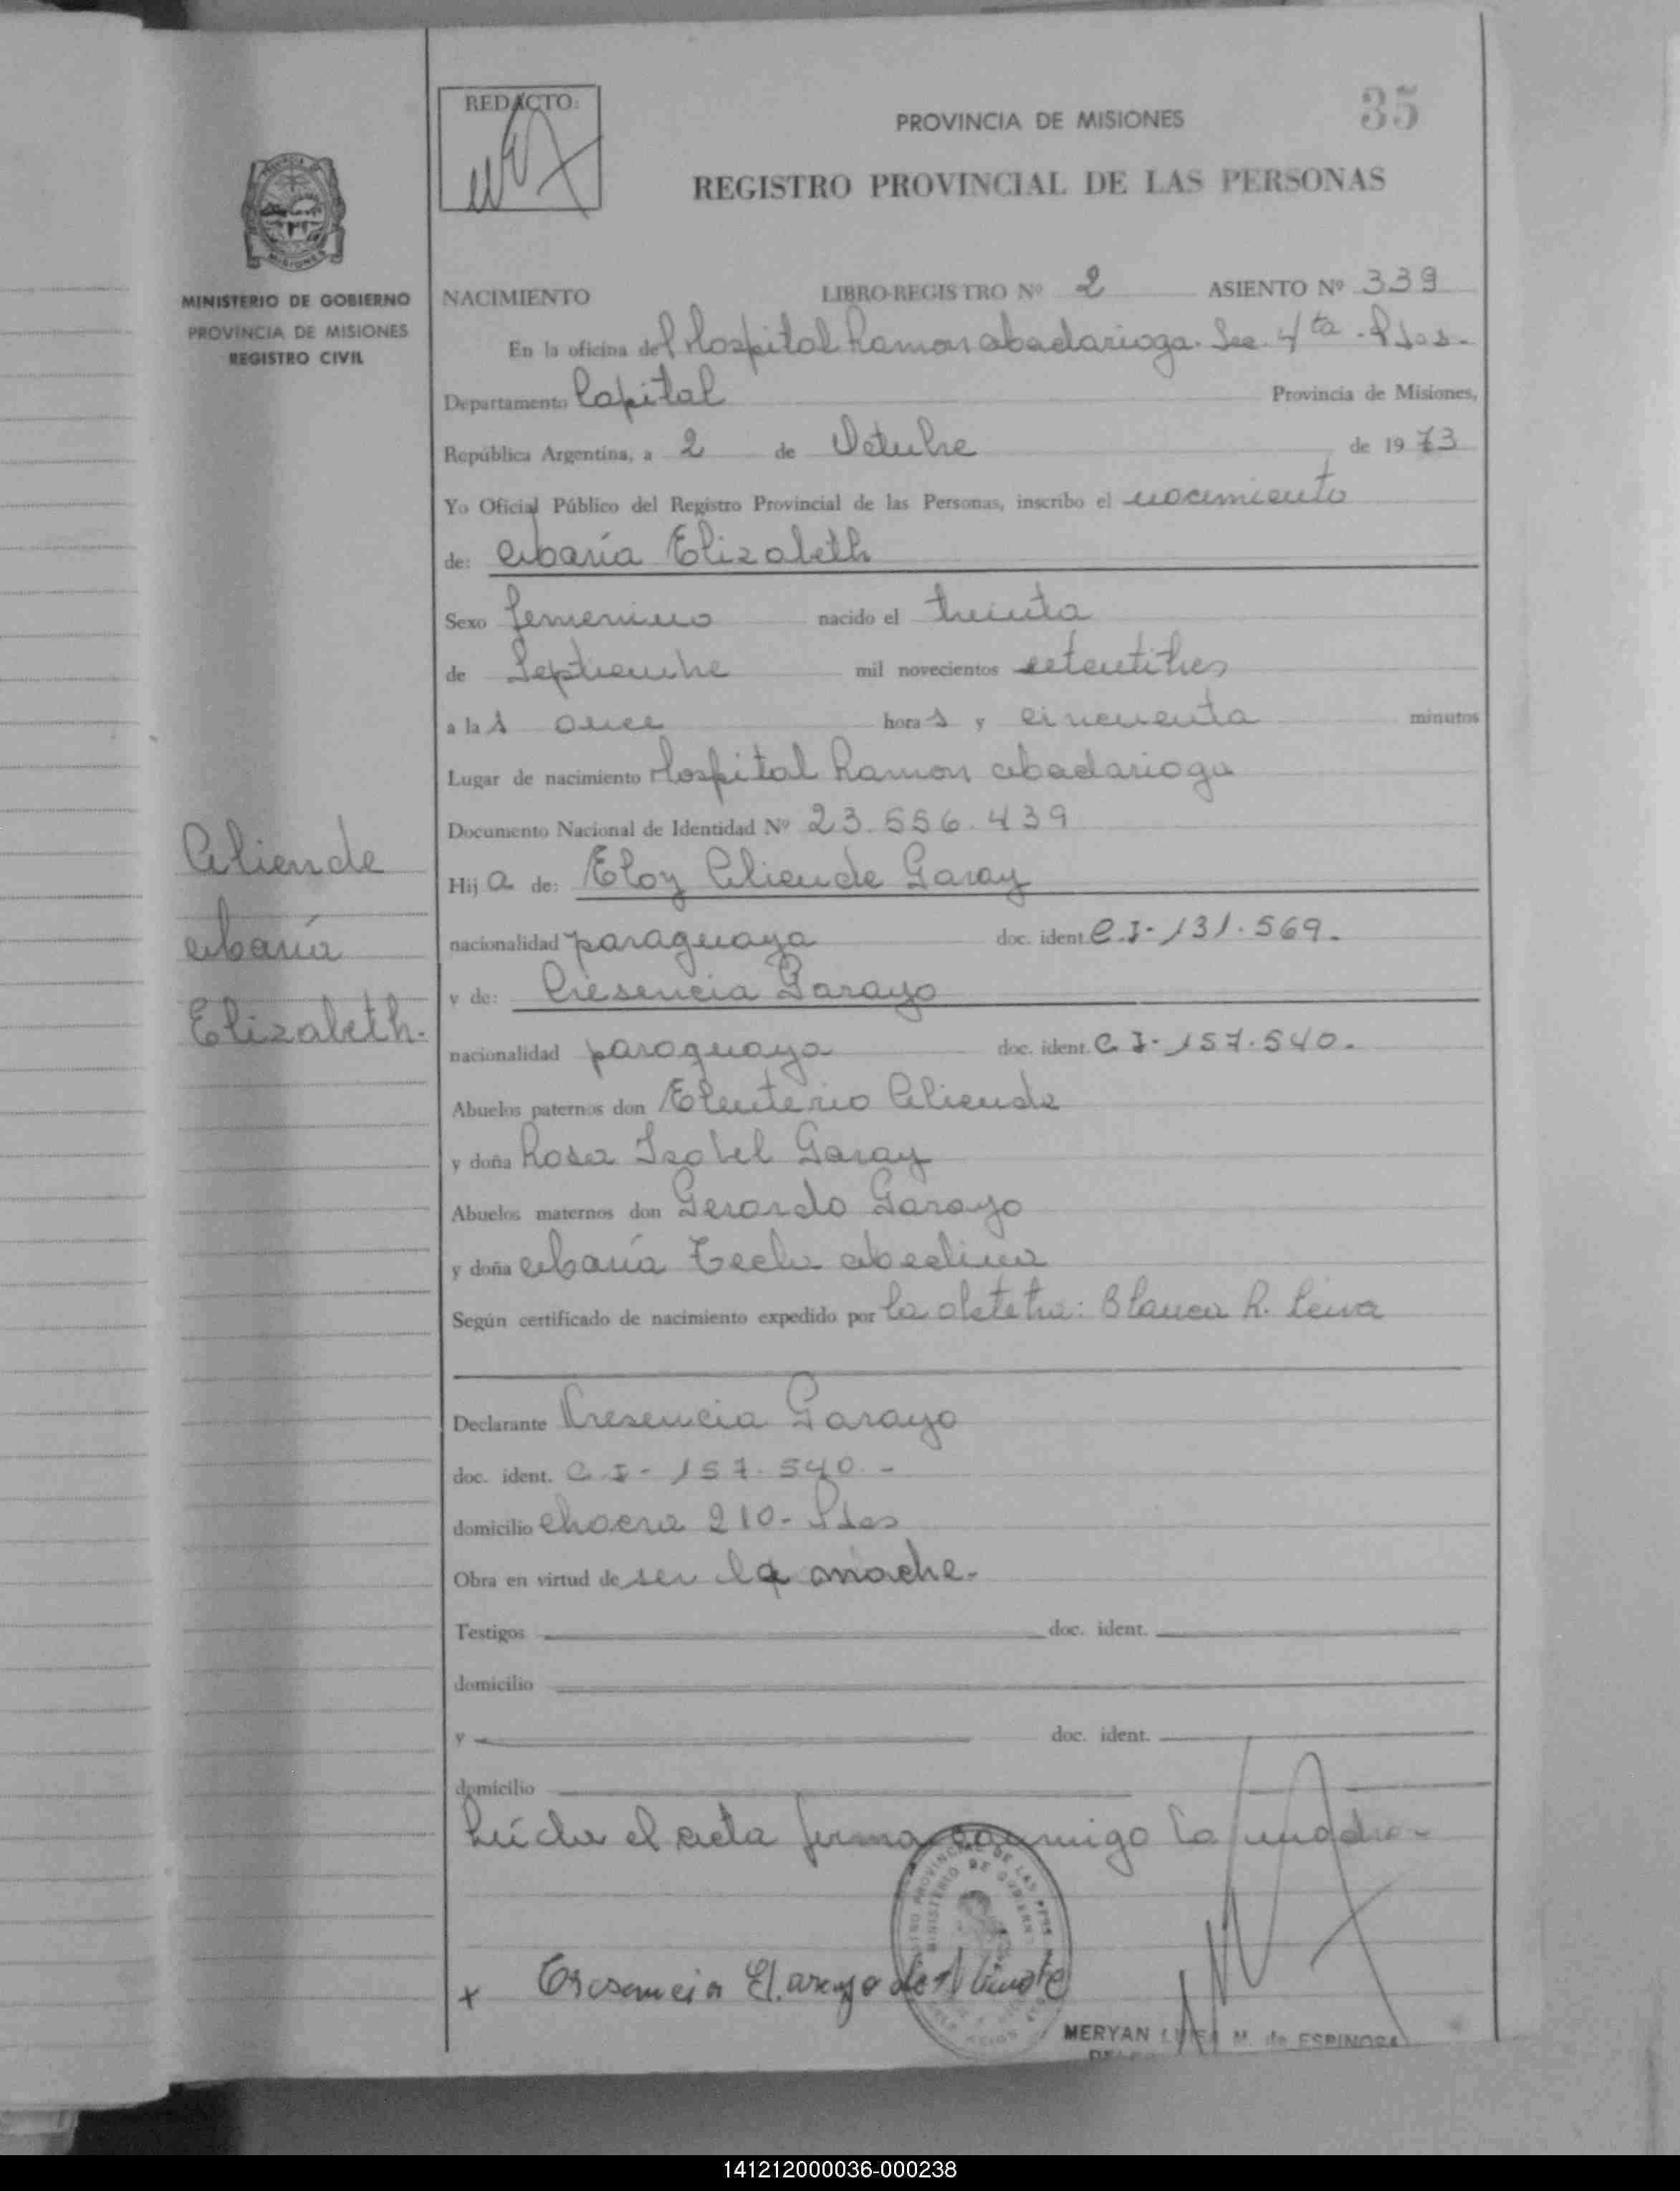 REDACTO:
PROVINCIA DE MISIONES
35
REGISTRO PROVINCIAL DE LAS PERSONAS
MINISTERIO DE GOBIERNO
PROVINCIA DE MISIONES
REGISTRO CIVIL
NACIMIENTO LIBRO-REGISTRO Nº 2 ASIENTO Nº 339
En la oficina del Hospital Ramon Madariaga. Sec. 4ta. Pdas.
Departamento Capital Provincia de Misiones,
República Argentina, a 2 de Octubre de 1973
Yo Oficial Público del Registro Provincial de las Personas, inscribo el nacimiento
de: María Elizabeth
Sexo femenino nacido el treinta
de Septiembre mil novecientos setentitres
a las once horas y cincuenta minutos
Lugar de nacimiento Hospital Ramon Madariaga
Documento Nacional de Identidad Nº 23.556.439
Hija de: Eloy Aliende Garay
nacionalidad paraguaya doc. ident. C.I. 131.569.
y de: Cresencia Garayo
nacionalidad paraguaya doc. ident. C.I. 157.540.
Abuelos paternos don Eleuterio Aliende
y doña Rosa Isabel Garay
Abuelos maternos don Gerardo Garayo
y doña María Tecla Medina
Según certificado de nacimiento expedido por la obstetra: Blanca R. Leiva
Aliende
María
Elizabeth.
Declarante Cresencia Garayo
doc. ident. C.I. 157.540.-
domicilio chacra 210- Pdas
Obra en virtud de ser la madre.
Testigos doc. ident.
domicilio
y doc. ident.
domicilio
Leída el acta firma conmigo la madre-
x Cresencia G. arayo de
MERYAN LUISA M. de ESPINOSA
141212000036-000238